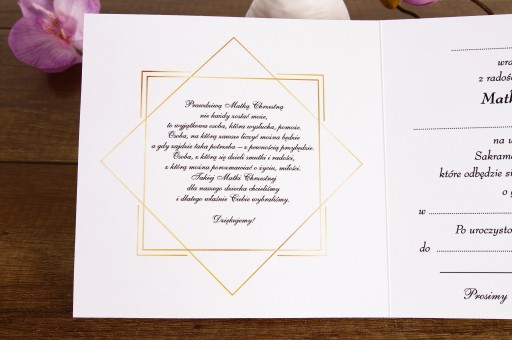 Prawdziwą Matką Chrzestną
nie każdy zostać może,
to wyjątkowa osoba, która wysłucha, pomoże.
Osoba, na którą zawsze liczyć można będzie
a gdy zajdzie taka potrzeba – z pewnością przybędzie.
Osoba, z którą się dzieli smutki i radości,
z którą można porozmawiać o życiu, miłości.
Takiej Matki Chrzestnej
dla naszego dziecka chcieliśmy
i dlatego właśnie Ciebie wybraliśmy.
Dziękujemy!
wraz
z radoś
Matk
na u
Sakrame
które odbędzie si
o g
w
Po uroczysto
do
Prosimy